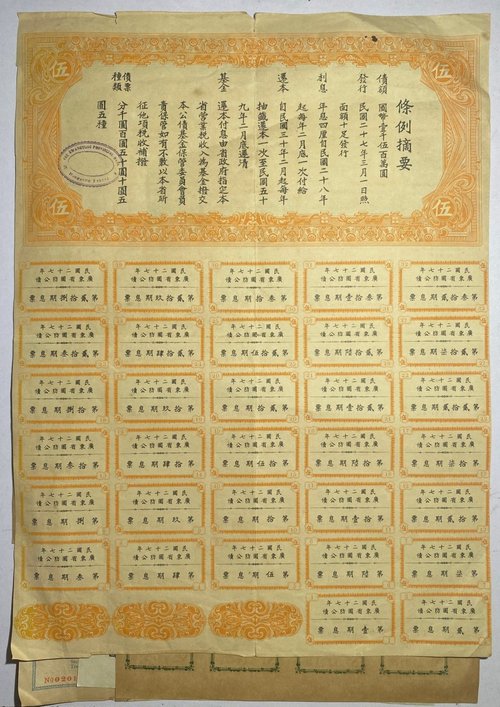 伍
伍
條例摘要
債額 國幣壹千伍百萬圓
發行 民國二十七年三月一日照
面額十足發行
利息 年息四厘自民國二十八年
起每年二月底一次付給
還本 自民國三十年二月起每年
抽籤還本一次至民國五十
九年二月底還清
基金 還本付息由省政府指定本
省營業稅收入為基金撥交
本公債基金保管委員會負
責保管如有不敷以本省所
征他項稅收補撥
債票種類 分千圓百圓五十圓十圓五
圓五種
伍
伍
民國二十七年
廣東省國防公債
第叁拾貳期息票
民國二十七年
廣東省國防公債
第叁拾壹期息票
民國二十七年
廣東省國防公債
第叁拾期息票
民國二十七年
廣東省國防公債
第貳拾玖期息票
民國二十七年
廣東省國防公債
第貳拾捌期息票
民國二十七年
廣東省國防公債
第貳拾柒期息票
民國二十七年
廣東省國防公債
第貳拾陸期息票
民國二十七年
廣東省國防公債
第貳拾伍期息票
民國二十七年
廣東省國防公債
第貳拾肆期息票
民國二十七年
廣東省國防公債
第貳拾叁期息票
民國二十七年
廣東省國防公債
第貳拾貳期息票
民國二十七年
廣東省國防公債
第貳拾壹期息票
民國二十七年
廣東省國防公債
第貳拾期息票
民國二十七年
廣東省國防公債
第拾玖期息票
民國二十七年
廣東省國防公債
第拾捌期息票
民國二十七年
廣東省國防公債
第拾柒期息票
民國二十七年
廣東省國防公債
第拾陸期息票
民國二十七年
廣東省國防公債
第拾伍期息票
民國二十七年
廣東省國防公債
第拾肆期息票
民國二十七年
廣東省國防公債
第拾叁期息票
民國二十七年
廣東省國防公債
第拾貳期息票
民國二十七年
廣東省國防公債
第拾壹期息票
民國二十七年
廣東省國防公債
第拾期息票
民國二十七年
廣東省國防公債
第玖期息票
民國二十七年
廣東省國防公債
第捌期息票
民國二十七年
廣東省國防公債
第柒期息票
民國二十七年
廣東省國防公債
第陸期息票
民國二十七年
廣東省國防公債
第伍期息票
民國二十七年
廣東省國防公債
第肆期息票
民國二十七年
廣東省國防公債
第叁期息票
民國二十七年
廣東省國防公債
第貳期息票
民國二十七年
廣東省國防公債
第壹期息票
伍
伍
伍
№0201